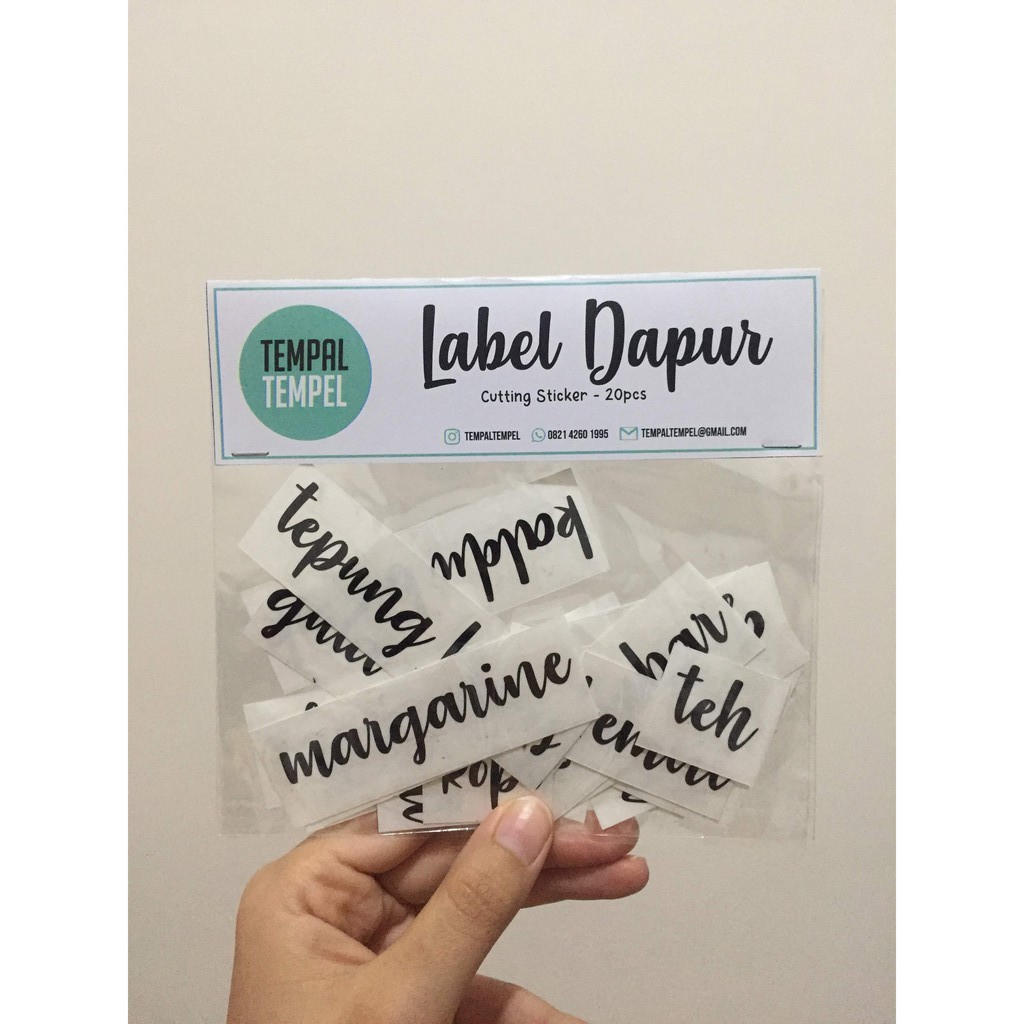 TEMPAL
TEMPEL
Label Dapur
Cutting Sticker - 20pcs
TEMPALTEMPEL
0821 4260 1995
TEMPALTEMPEL@GMAIL.COM
tepung
kaldu
margarine
teh